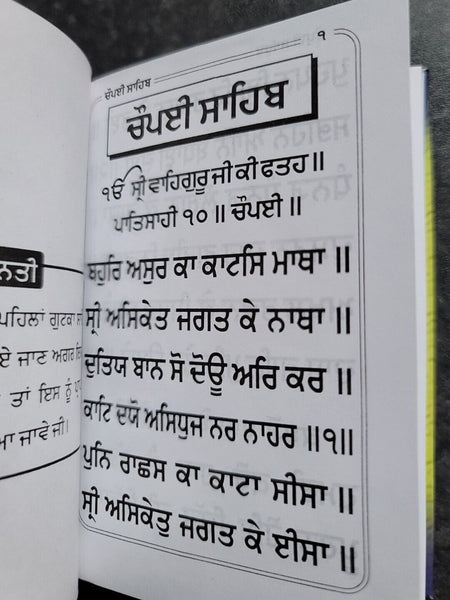 ਨਤੀ
ਪਹਿਲਾਂ ਗੁਟਕਾ
ਏ ਜਾਣ ਅਗਰ
ਤਾਂ ਇਸ ਨੂੰ
ਜਾਵੇ ਜੀ।
੧
ਚੌਪਈ ਸਾਹਿਬ
ਚੌਪਈ ਸਾਹਿਬ
ੴ ਸ੍ਰੀ ਵਾਹਿਗੁਰੂ ਜੀ ਕੀ ਫਤਹ॥
ਪਾਤਿਸਾਹੀ ੧੦ ॥ ਚੌਪਈ ॥
ਬਹੁਰਿ ਅਸੁਰ ਕਾ ਕਾਟਸਿ ਮਾਥਾ ॥
ਸ੍ਰੀ ਅਸਿਕੇਤ ਜਗਤ ਕੇ ਨਾਥਾ ॥
ਦੁਤਿਯ ਬਾਨ ਸੋ ਦੋਊ ਅਰਿ ਕਰ ॥
ਕਾਟਿ ਦਯੋ ਅਸਿਧੁਜ ਨਰ ਨਾਹਰ ॥੧॥
ਪੁਨਿ ਰਾਛਸ ਕਾ ਕਾਟਾ ਸੀਸਾ ॥
ਸ੍ਰੀ ਅਸਿਕੇਤੁ ਜਗਤ ਕੇ ਈਸਾ ॥